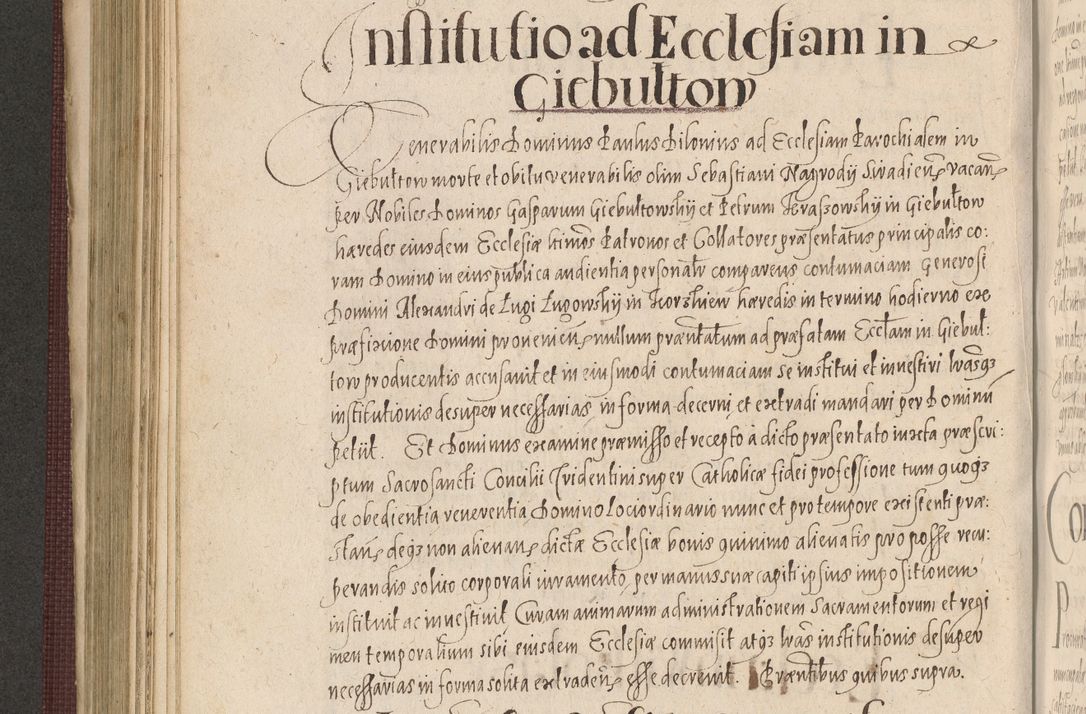 Institutio ad Ecclesiam in
Giebułtow
Venerabilis Dominus Paulus Pilonius ad Ecclesiam Parochialem in
Giebułtow morte et obitu venerabilis olim Sebastiani Nagrodij Siradien̄ vacan̄
per Nobiles Dominos Gasparum Giebułtowskij et Petrum Kraszowskij in Giebułtow
hæredes eiusdem Ecclesiæ ltimos Patronos et Collatores præsentatus principalis co:
ram Domino in eius publica audientia personalr comparens contumaciam Generosi
Domini Alexandri de Lugi Lugowskij in Korzkiew hæredis in termino hodierno exe
præfixione Domini provenien̄ nullum præntatum ad præfatam Ecctam in Giebuł:
tow producentis accusavit et in eiusmodi contumaciam se institui et investiri lrasq3
institutionis desuper necessarias in forma decerni et extradi mandari per Dominū
petiit. Et Dominus examine præmisso et recepto à dicto præsentato iuxta præscri:
ptum Sacrosancti Concilii Tridentini super Catholicæ fidei professione tum quoq3
de obedientia reverentia Domino Loci ordinario nunc et pro tempore existenti præ:
stan̄ deq3 non alienan̄ dictæ Ecclesiæ bonis quinimo alienatis pro posse recu:
perandis solito corporali iuramento, per manus suæ capiti ipsius impositionem
instituit ac investivit Curam animarum administrationem Sacramentorum et regi
men temporalium sibi eiusdem Ecclesiæ commisit atq3 lras institutionis desuper
necessarias in forma solita extraden̄ esse decrevit. Præntibus quibus supra.